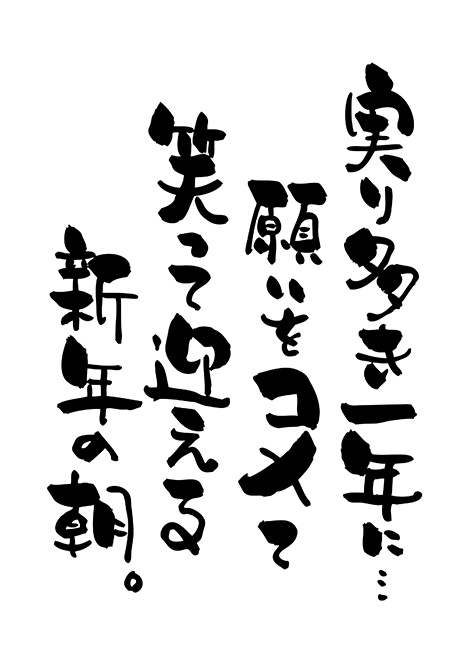 実り多き一年に…
願いをコメて
笑って迎える
新年の朝。